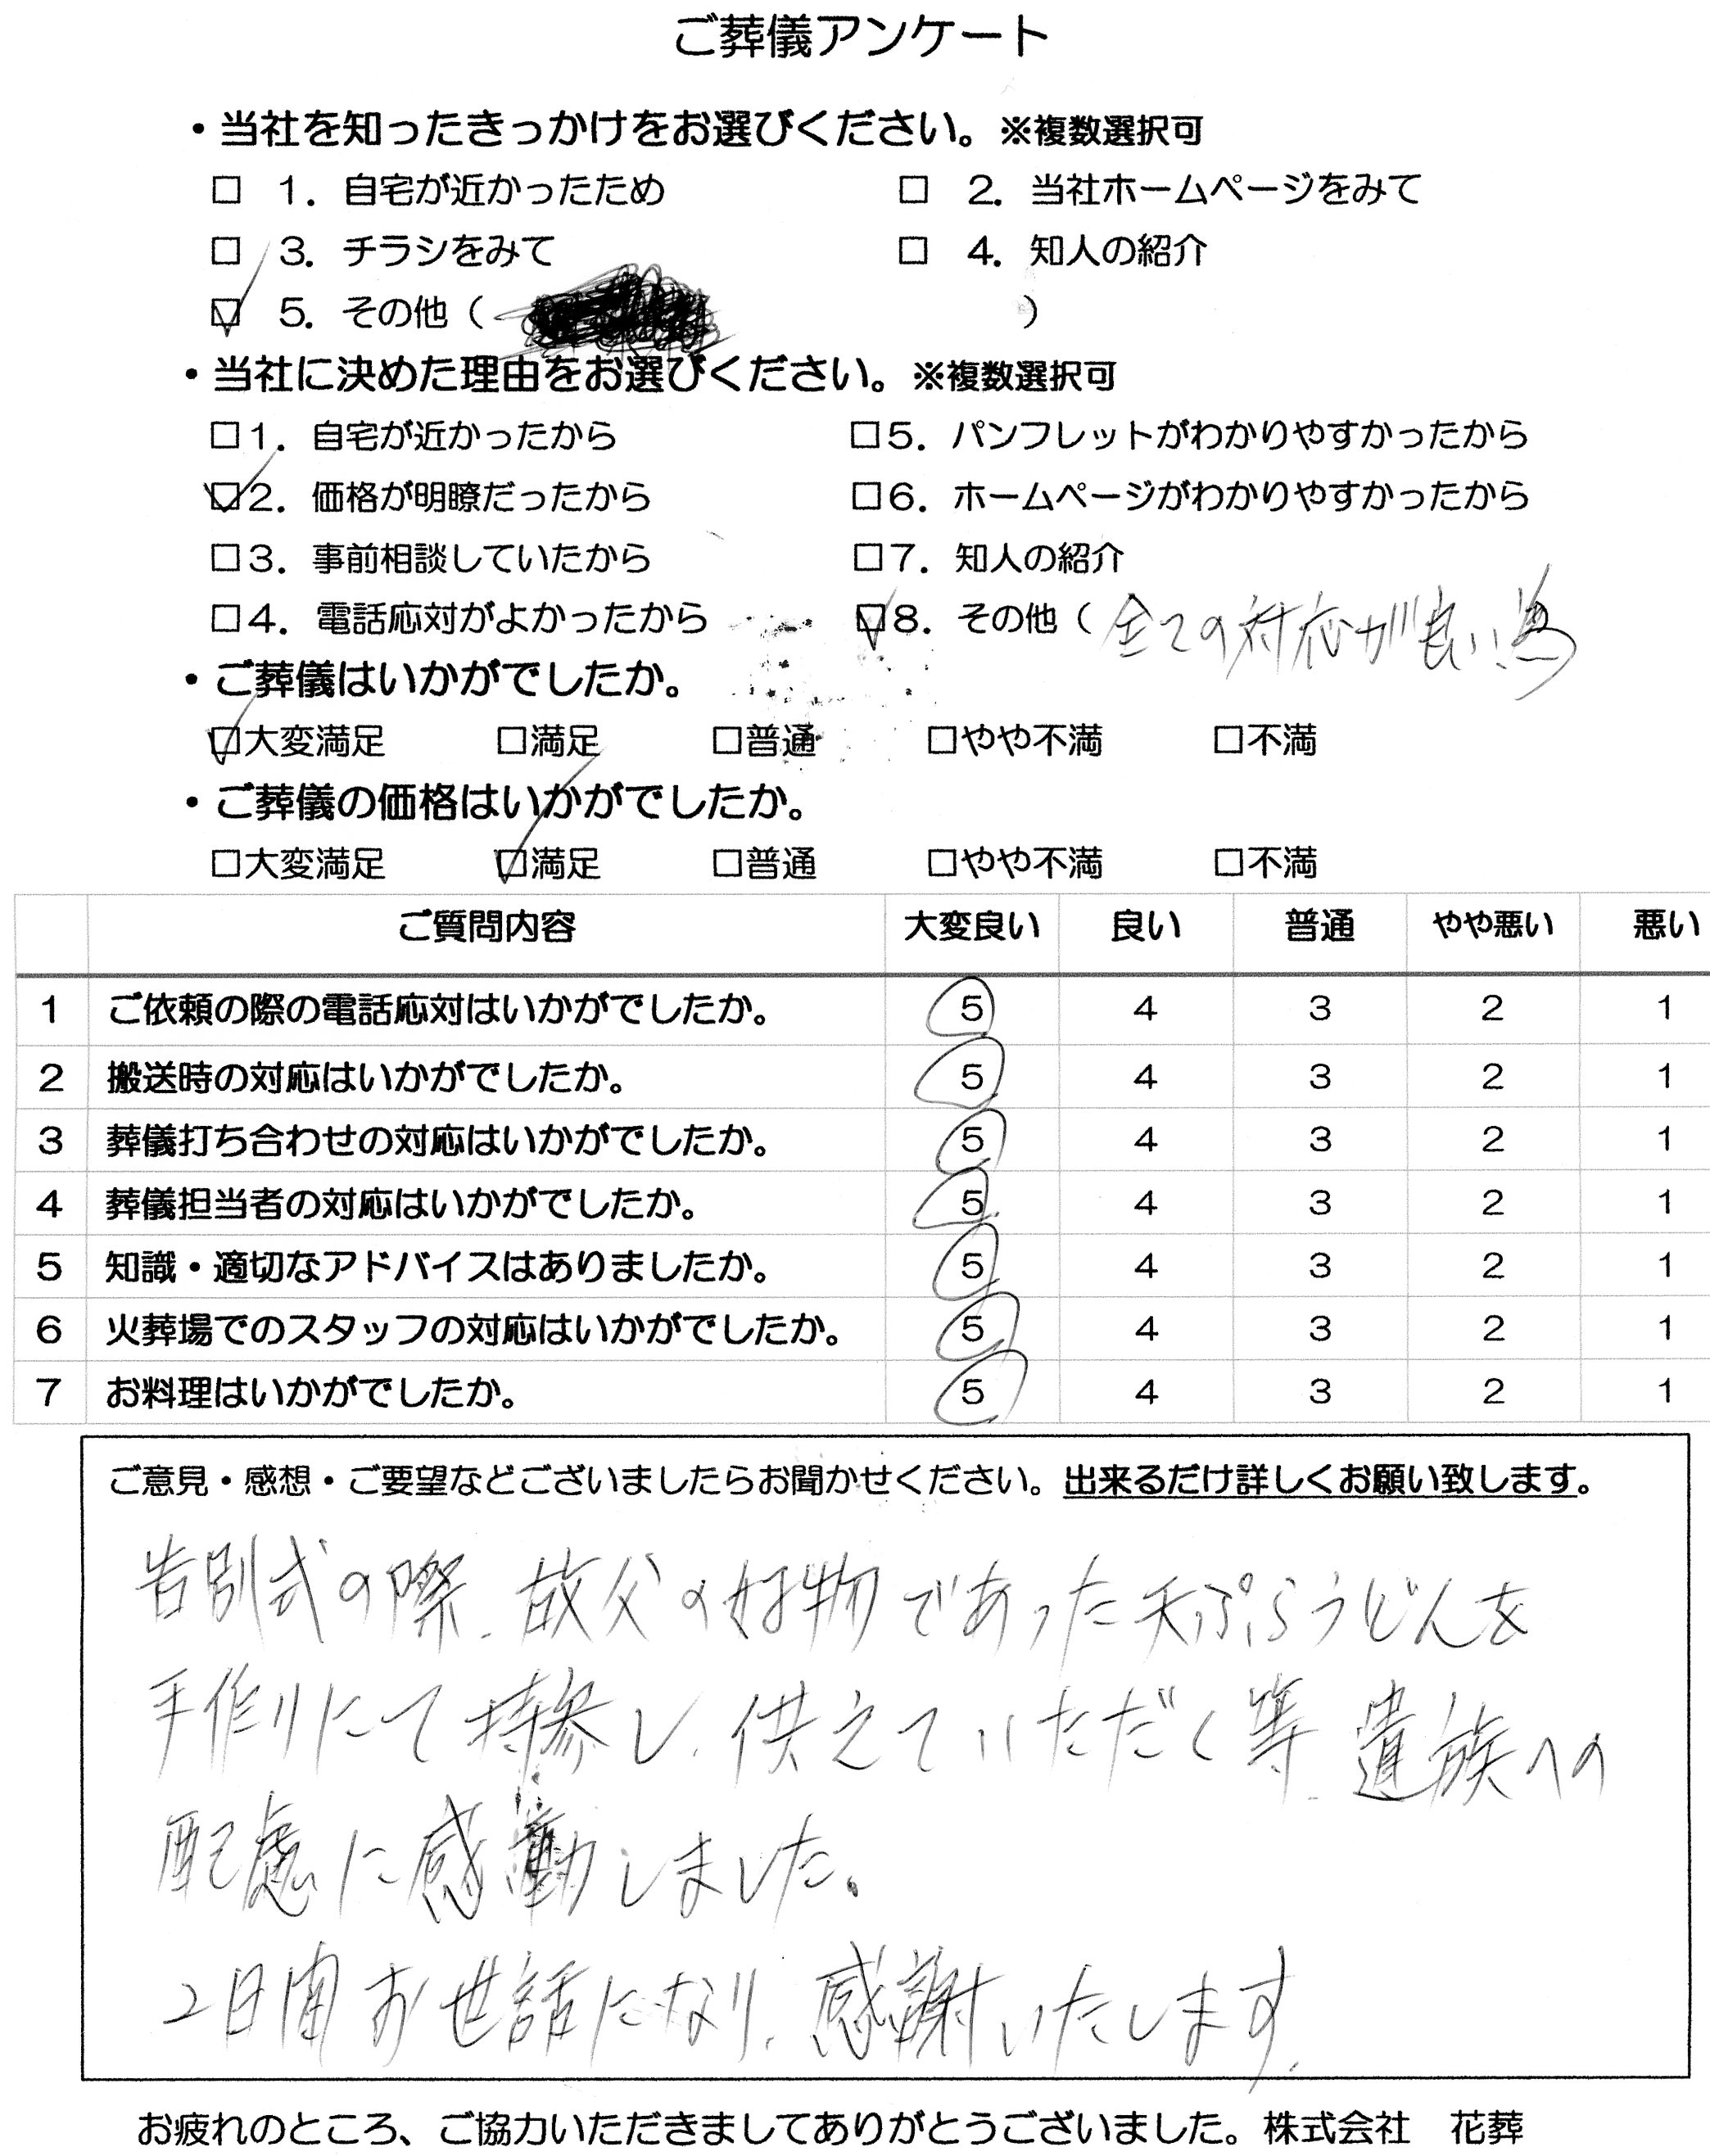 ご葬儀アンケート
・当社を知ったきっかけをお選びください。※複数選択可
□ 1．自宅が近かったため □ 2．当社ホームページをみて
□ 3．チラシをみて □ 4．知人の紹介
☑ 5．その他（ ）
・当社に決めた理由をお選びください。※複数選択可
□1．自宅が近かったから □5．パンフレットがわかりやすかったから
☑2．価格が明瞭だったから □6．ホームページがわかりやすかったから
□3．事前相談していたから □7．知人の紹介
□4．電話応対がよかったから ☑8．その他（全ての対応が良い為）
・ご葬儀はいかがでしたか。
☑大変満足 □満足 □普通 □やや不満 □不満
・ご葬儀の価格はいかがでしたか。
□大変満足 ☑満足 □普通 □やや不満 □不満
ご質問内容 大変良い 良い 普通 やや悪い 悪い
1 ご依頼の際の電話応対はいかがでしたか。 5 4 3 2 1
2 搬送時の対応はいかがでしたか。 5 4 3 2 1
3 葬儀打ち合わせの対応はいかがでしたか。 5 4 3 2 1
4 葬儀担当者の対応はいかがでしたか。 5 4 3 2 1
5 知識・適切なアドバイスはありましたか。 5 4 3 2 1
6 火葬場でのスタッフの対応はいかがでしたか。 5 4 3 2 1
7 お料理はいかがでしたか。 5 4 3 2 1
ご意見・感想・ご要望などございましたらお聞かせください。出来るだけ詳しくお願い致します。
告別式の際、故父の好物であった天ぷらうどんを
手作りにて持参し、供えていただく等、遺族への
配慮に感動しました。
2日間お世話になり、感謝いたします。
お疲れのところ、ご協力いただきましてありがとうございました。株式会社 花葬